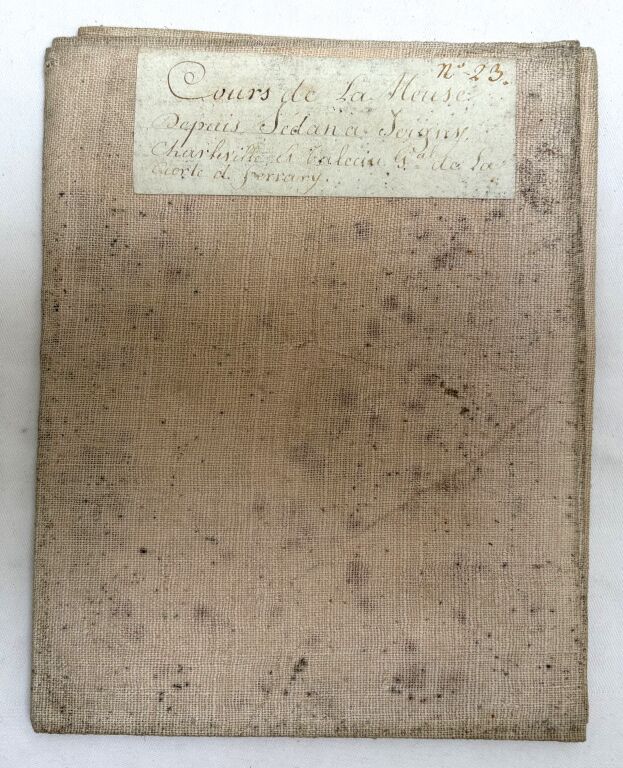 Nº 23.
Cours de La Meuse
Depuis Sedan a Joigny
Charleville et tableau G.al de La
Carte de Ferrary.